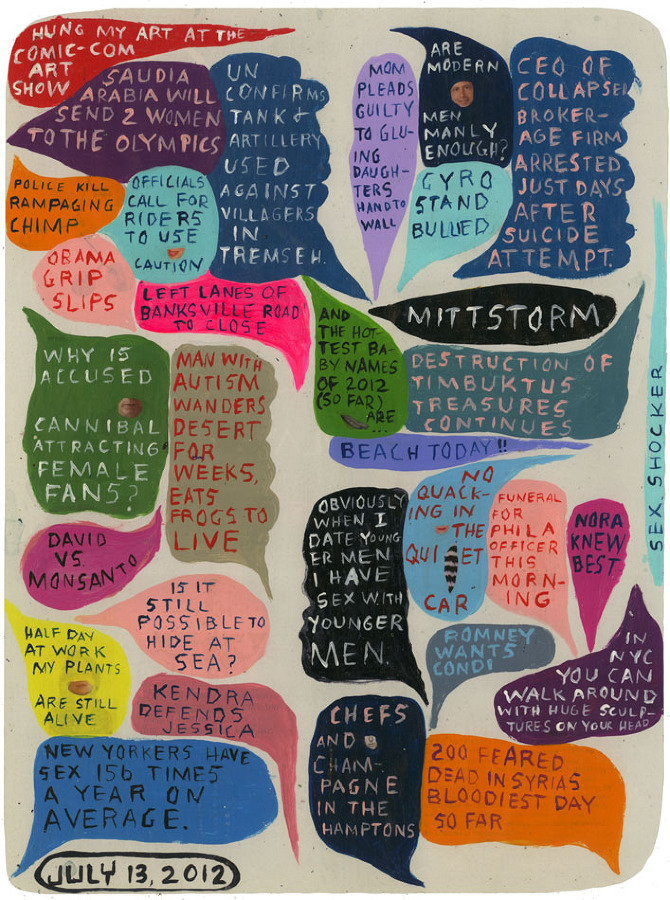 HUNG MY ART AT THE
COMIC-COM
ART
SHOW
SAUDIA
ARABIA WILL
SEND 2 WOMEN
TO THE OLYMPICS
UN
CONFIRMS
TANK &
ARTILLERY
USED
AGAINST
VILLAGERS
IN
TREMSEH.
MOM
PLEADS
GUILTY
TO GLU-
ING
DAUGH-
TERS
HAND TO
WALL
ARE
MODERN
MEN
MANLY
ENOUGH?
CEO OF
COLLAPSED
BROKER-
AGE FIRM
ARRESTED
JUST DAYS
AFTER
SUICIDE
ATTEMPT.
POLICE KILL
RAMPAGING
CHIMP
OFFICIALS
CALL FOR
RIDERS
TO USE
CAUTION
GYRO
STAND
BULLIED
OBAMA
GRIP
SLIPS
LEFT LANES OF
BANKSVILLE ROAD
TO CLOSE
AND
THE HOT-
TEST BA-
BY NAMES
OF 2012
(SO FAR)
ARE
...
MITTSTORM
DESTRUCTION OF
TIMBUKTUS
TREASURES
CONTINUES
SEX SHOCKER
WHY IS
ACCUSED
CANNIBAL
ATTRACTING
FEMALE
FANS?
MAN WITH
AUTISM
WANDERS
DESERT
FOR
WEEKS,
EATS
FROGS TO
LIVE
BEACH TODAY!!
OBVIOUSLY
WHEN I
DATE YOUNG
ER MEN
I HAVE
SEX WITH
YOUNGER
MEN.
NO
QUACK-
ING IN
THE
QUIET
CAR
FUNERAL
FOR
PHILA
OFFICER
THIS
MORN-
ING
NORA
KNEW
BEST
DAVID
VS.
MONSANTO
IS IT
STILL
POSSIBLE TO
HIDE AT
SEA?
HALF DAY
AT WORK
MY PLANTS
ARE STILL
ALIVE
KENDRA
DEFENDS
JESSICA
ROMNEY
WANTS
CONDI
IN
NYC
YOU CAN
WALK AROUND
WITH HUGE SCULP-
TURES ON YOUR HEAD
NEW YORKERS HAVE
SEX 156 TIMES
A YEAR ON
AVERAGE.
CHEFS
AND
CHAM-
PAGNE
IN THE
HAMPTONS
200 FEARED
DEAD IN SYRIAS
BLOODIEST DAY
SO FAR
JULY 13, 2012